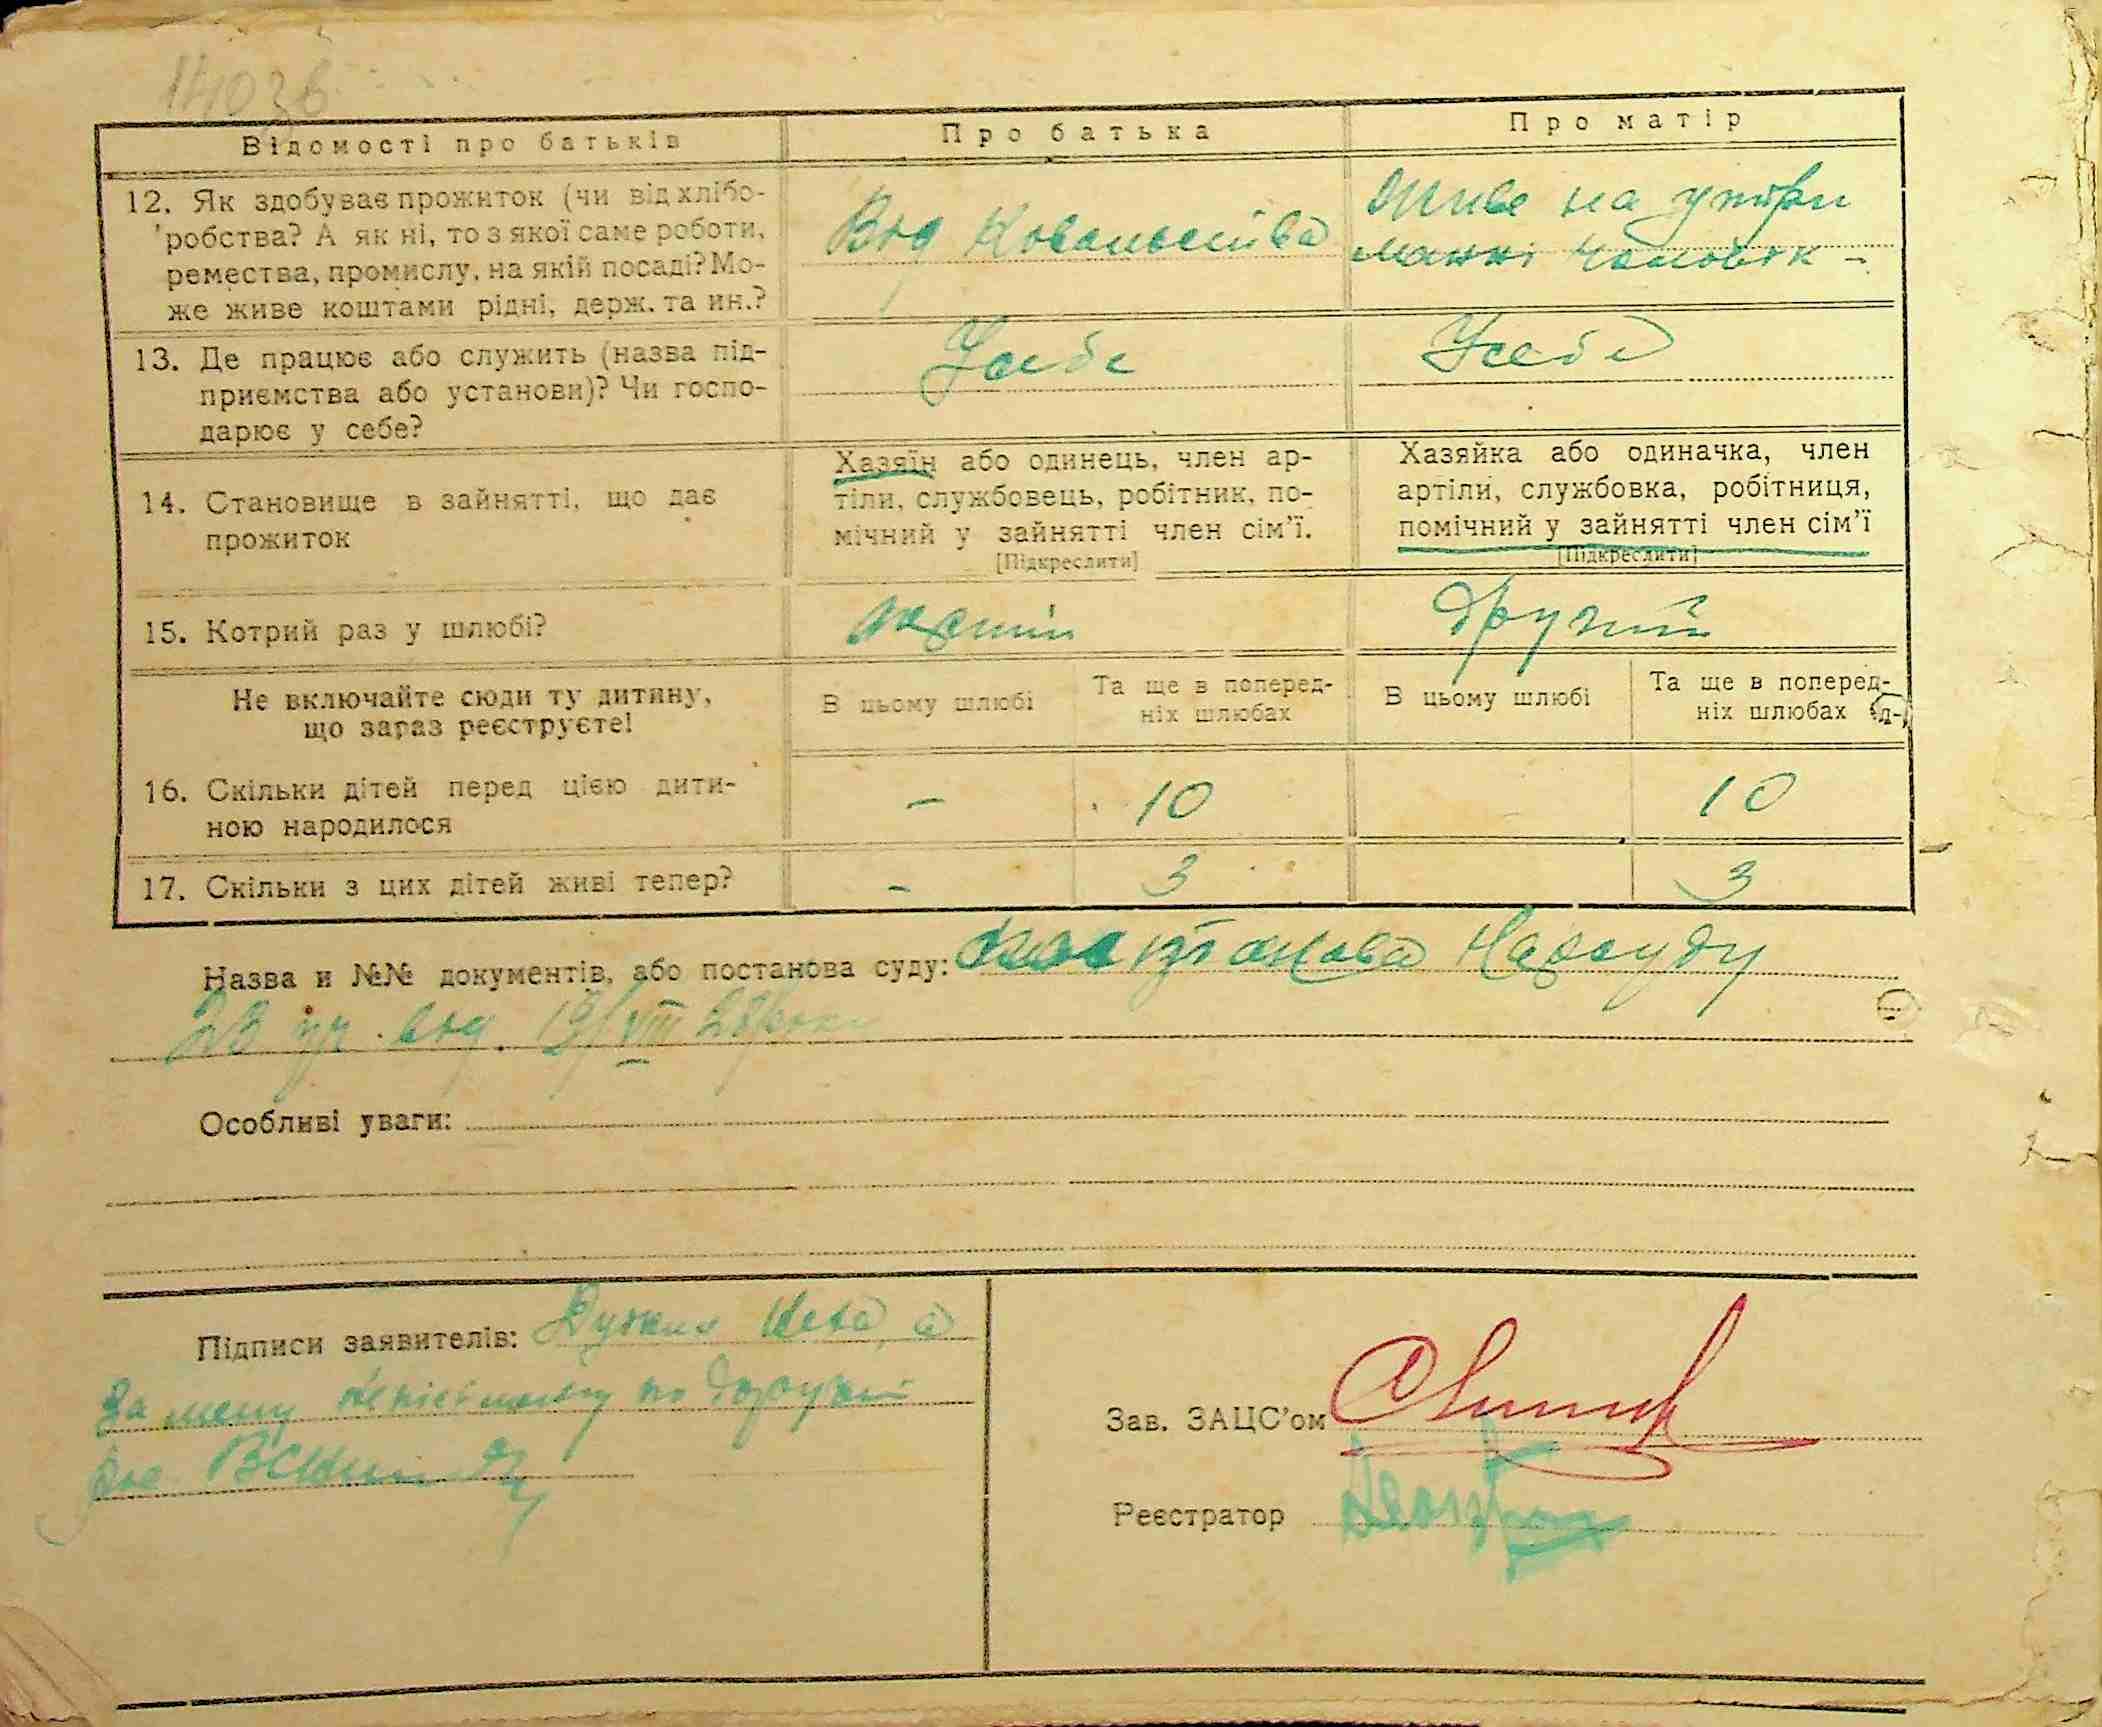 Відомості про батьків
Про батька
Про матір
12. Як здобуває прожиток (чи від хлібо-
робства? А як ні, то з якої саме роботи,
ремества, промислу, на якій посаді? Мо-
же живе коштами рідні, держ. та ин.?
Вод Ковальства
Живе на утри
манні чоловік -
13. Де працює або служить (назва під-
приємства або установи)? Чи госпо-
дарює у себе?
У себе
У себе
14. Становище в зайнятті, що дає
прожиток
Хазяїн або одинець, член ар-
тіли, службовець, робітник, по-
мічний у зайнятті член сім'ї.
[Підкреслити]
Хазяйка або одиначка, член
артіли, службовка, робітниця,
помічний у зайнятті член сім'ї
[Підкреслити]
15. Котрий раз у шлюбі?
другий
Не включайте сюди ту дитину,
що зараз реєструєте!
В цьому шлюбі
Та ще в поперед-
ніх шлюбах
В цьому шлюбі
Та ще в поперед-
ніх шлюбах
16. Скільки дітей перед цією дити-
ною народилося
- 10 10
17. Скільки з цих дітей живі тепер?
- 3 3
Назва и №№ документів, або постанова суду: Нарсуду
23 вод 19/VIII 28 року
Особливі уваги:
Підписи заявителів:
за
Зав. ЗАЦС'ом
Реєстратор